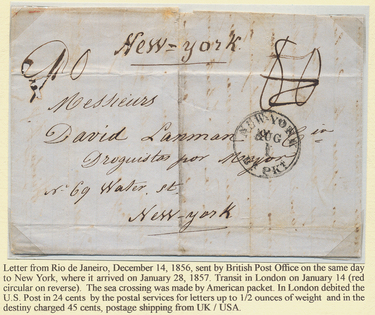 New-York
Messieurs
David Lanman
Droguistas por Mayor
No 69 Water st
New-York
NEW-YORK
AUG
PKT
Letter from Rio de Janeiro, December 14, 1856, sent by British Post Office on the same day
to New York, where it arrived on January 28, 1857. Transit in London on January 14 (red
circular on reverse). The sea crossing was made by American packet. In London debited the
U.S. Post in 24 cents by the postal services for letters up to 1/2 ounces of weight and in the
destiny charged 45 cents, postage shipping from UK / USA.